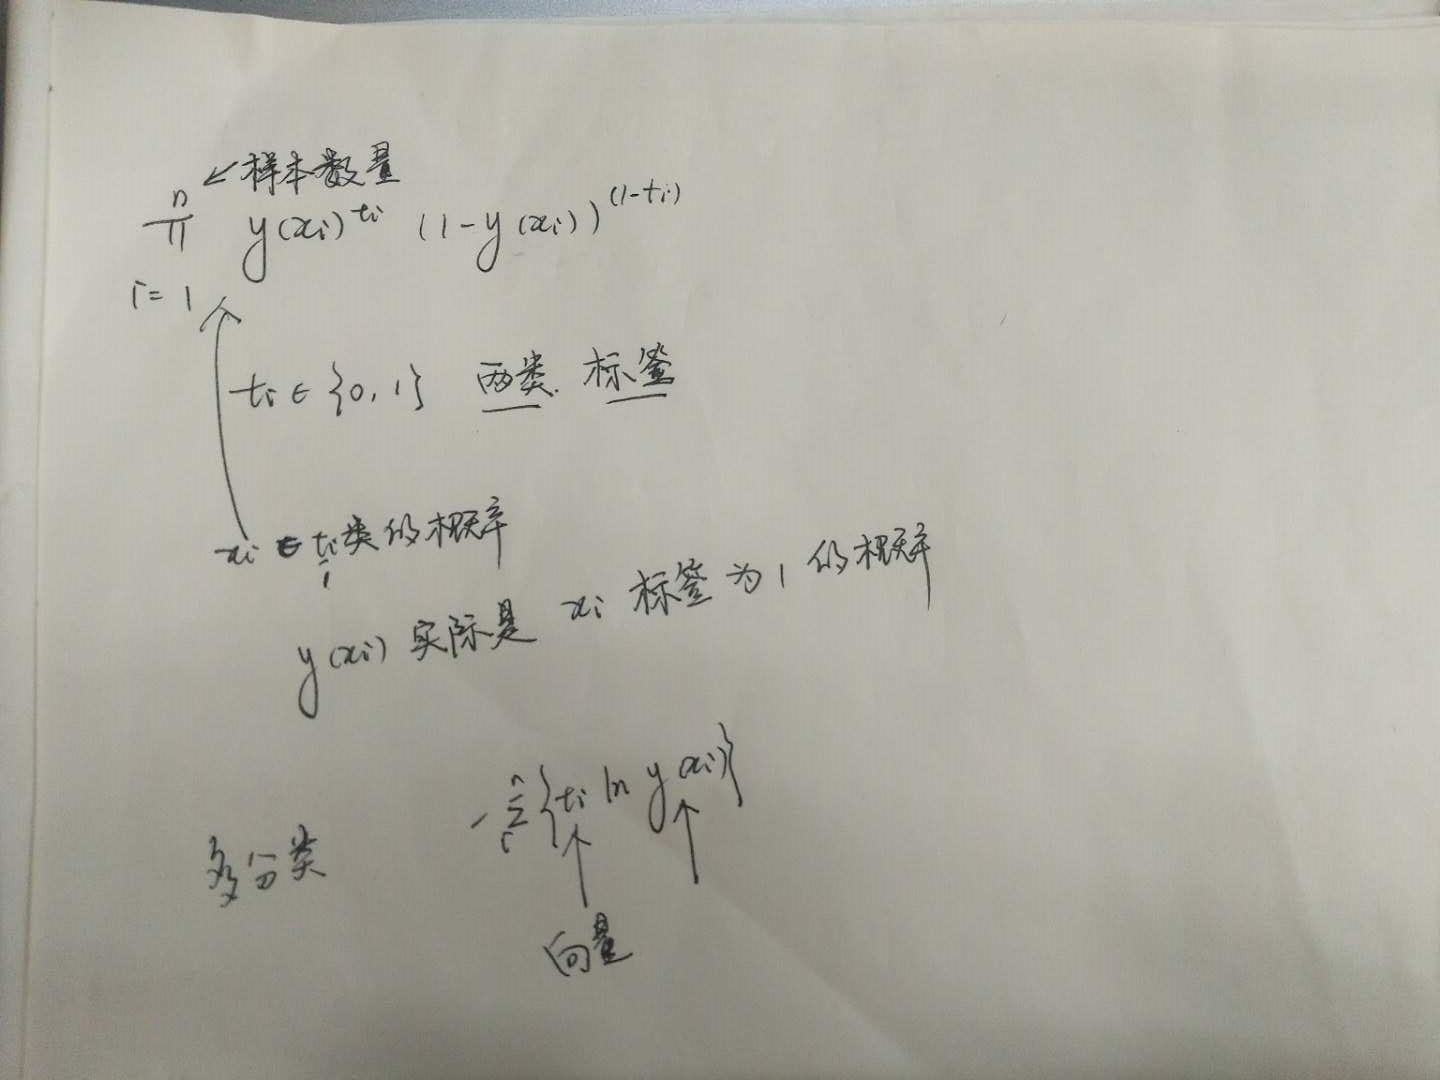 n ← 样本数量
∏ y(xi)^ti (1-y(xi))^(1-ti)
i=1
ti ∈ {0,1} 两类. 标签
xi ∈ ti类的概率
i
y(xi) 实际是 xi 标签为1的概率
-∑ⁿᵢ{ti ln y(xi)}
多分类
向量